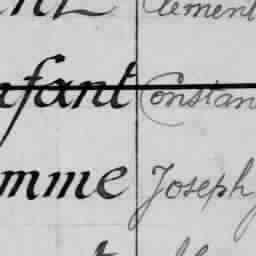 Clement
nfant Constan
mme Joseph